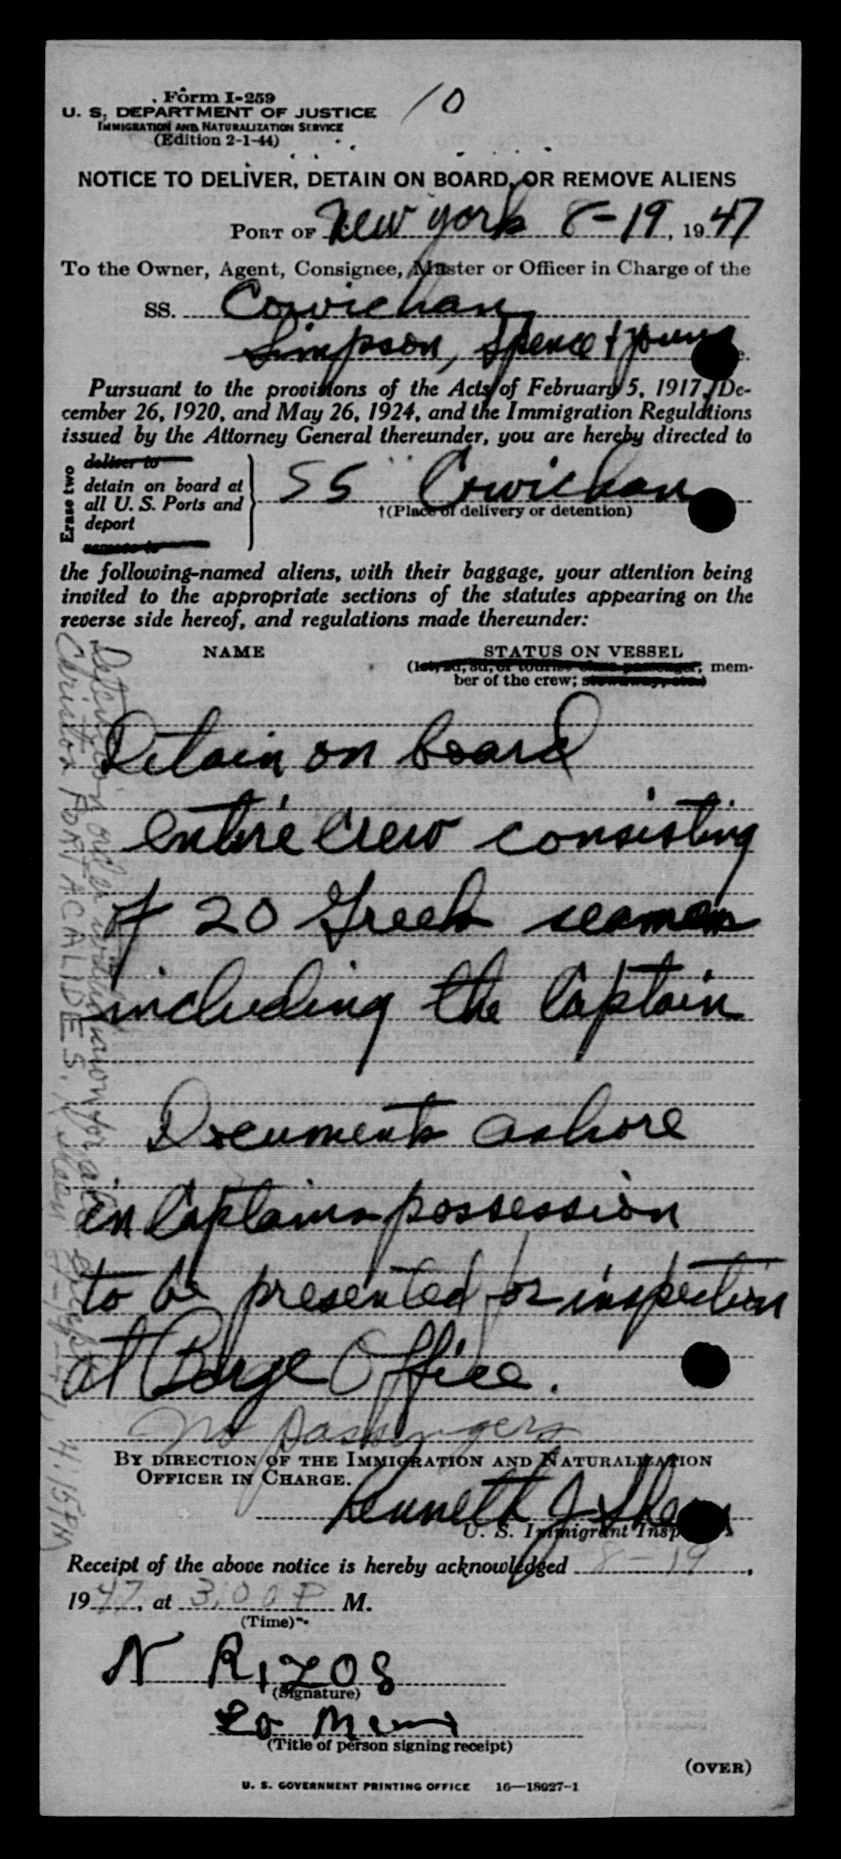 Form I-259
10
U. S. DEPARTMENT OF JUSTICE
IMMIGRATION AND NATURALIZATION SERVICE
(Edition 2-1-44)
NOTICE TO DELIVER, DETAIN ON BOARD, OR REMOVE ALIENS
PORT OF New York 8-19, 1947
To the Owner, Agent, Consignee, Master or Officer in Charge of the
SS. Cowichan
Simpson, Spence & Young
Pursuant to the provisions of the Acts of February 5, 1917, De-
cember 26, 1920, and May 26, 1924, and the Immigration Regulations
issued by the Attorney General thereunder, you are hereby directed to
Erase two
deliver to
detain on board at
all U. S. Ports and
deport
remove to
SS "Cowichan
†(Place of delivery or detention)
the following-named aliens, with their baggage, your attention being
invited to the appropriate sections of the statutes appearing on the
reverse side hereof, and regulations made thereunder:
NAME STATUS ON VESSEL
(1st, 2d, 3d, or tourist class passenger; mem-
ber of the crew; stowaway, etc.)
Detain on board
entire crew consisting
of 20 Greek seamen
including the Captain
Documents ashore
in Captains possession
to be presented for inspection
at Barge Office.
no passengers
Detention order withdrawn for all except
Christos PORTACALIDES. K Shea 8-19-47, 4:15PM
BY DIRECTION OF THE IMMIGRATION AND NATURALIZATION
OFFICER IN CHARGE.
Kenneth J Shea
U. S. Immigrant Insp
Receipt of the above notice is hereby acknowledged 8-19,
1947, at 3:00 P M.
(Time)
N RIZOS
(Signature)
(Title of person signing receipt)
(OVER)
U. S. GOVERNMENT PRINTING OFFICE 16—18027-1